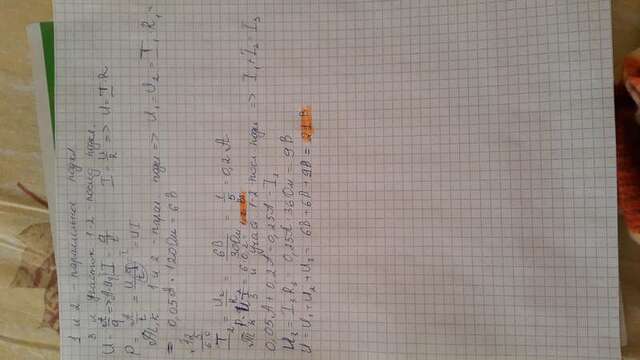 1 и 2 параллельное подкл
3 и участок 1-2 послед подкл.
U = A/q => A = Uq I = q/t I = U/R => U = IR
P = A/t = Uq/t = UI
Т.к 1 и 2 - парал подкл => U₁ = U₂ = I₁ R₁ =
= 0,05А · 120Ом = 6В
I₂ = U₂/R₂ = 6В/30Ом = 1/5 = 0,2А
Т.к 3 и участ 1-2 посл подкл => I₁ + I₂ = I₃
0,05А + 0,2А = 0,25А I₃
U₃ = I₃R₃ 0,25А 36Ом = 9В
U = U₁ + U₂ + U₃ = 6В + 6В + 9В = 21В